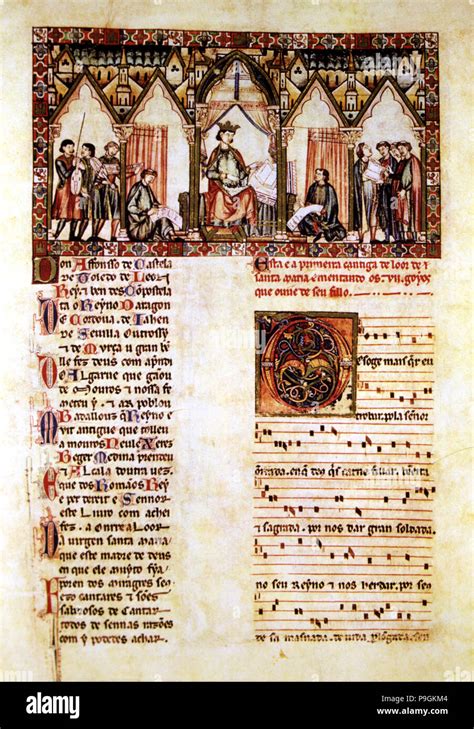 Don Affonso de Castela
de Toledo de Leon
Rey é ben des Cõpostela
ta o Reyno Daragon
De Cordoua de Iahen
De Seuilla outrossy
E de Murça u gran bẽ
lle fez deus com apndi
Do Algarue que gãou
de Mouros e nossa fe
meteu y. & ar poblou
Badallouz q̃ Reyno é
Muit antigue que tolleu
a mouros Neul e Xerez
Beger Medina prendeu
E Alcala doutra uez
E que dos Romãos Rey
é per dereit e Sennor
este Liuro com achei
fez. a onrr e a Loor
Da virgen santa maria
que este madre de deus
en que ele muito fia
poren dos miragres seus
Fez cantares e sões
saborosos de Cantar
todos de sennas razões
com y podedes achar.
Esta é a primeira cantiga de loor de s
santa maria ementando os .VII. goyos
que ouue de seu fillo.
Des oge mais q̃r eu
trobar. pola sẽnor
onrrada. en q̃ deus q̃s carne fillar. bẽeita
e sagrada. por nos dar gran soldada.
no seu Reyno e nos herdar. por seus
de sa masnada. de uida p̃longada. sen
alamy
Image ID: P9GKM4
www.alamy.com